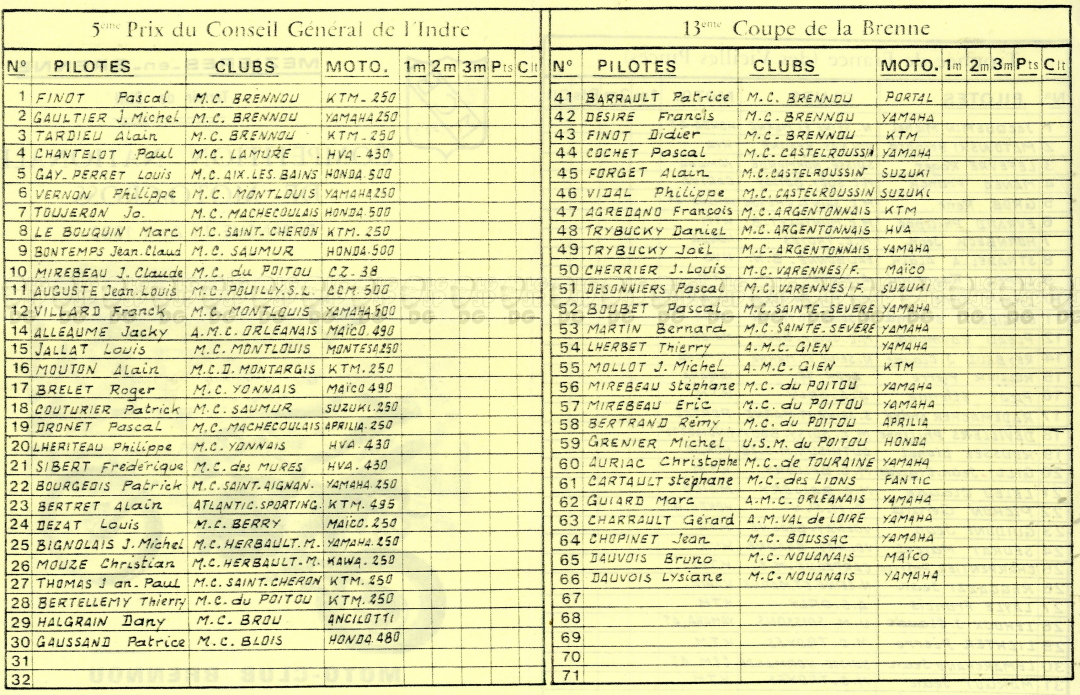 5eme Prix du Conseil Général de l'Indre
N° PILOTES CLUBS MOTO. 1m 2m 3m Pts Clt
1 FINOT Pascal M.C. BRENNOU KTM-250
2 GAULTIER J.Michel M.C. BRENNOU YAMAHA250
3 TARDIEU Alain M.C. BRENNOU KTM-250
4 CHANTELOT Paul M.C. LAMURE HVA-430
5 GAY-PERRET Louis M.C. AIX.LES.BAINS HONDA.500
6 VERNON Philippe M.C. MONTLOUIS YAMAHA250
7 TOUJERON Jo. M.C. MACHECOULAIS HONDA.500
8 LE BOUQUIN Marc M.C. SAINT.CHERON KTM.250
9 BONTEMPS Jean.Claud M.C. SAUMUR HONDA.500
10 MIREBEAU J.Claude M.C. du POITOU CZ-38
11 AUGUSTE Jean.Louis M.C. POUILLY.S.L. CCM.500
12 VILLARD Franck M.C. MONTLOUIS YAMAHA500
14 ALLEAUME Jacky A.M.C. ORLEANAIS MAÏCO.490
15 JALLAT Louis M.C. MONTLOUIS MONTESA250
16 MOUTON Alain M.C.D. MONTARGIS KTM.250
17 BRELET Roger M.C. YONNAIS MAÏCO490
18 COUTURIER Patrick M.C. SAUMUR SUZUKI.250
19 DRONET Pascal M.C. MACHECOULAIS APRILIA.250
20 LHERITEAU Philippe M.C. YONNAIS HVA.430
21 SIBERT Frédérique M.C. des MURES HVA.430
22 BOURGEOIS Patrick M.C. SAINT.AIGNAN. YAMAHA.250
23 BERTRET Alain ATLANTIC.SPORTING. KTM.495
24 DEZAT Louis M.C. BERRY MAÏCO.250
25 BIGNOLAIS J.Michel M.C. HERBAULT.M. YAMAHA.250
26 MOUZE Christian M.C. HERBAULT.M. KAWA.250
27 THOMAS J an.Paul M.C. SAINT.CHERON KTM.250
28 BERTELLEMY Thierry M.C. du POITOU KTM.250
29 HALGRAIN Dany M.C. BROU ANCILOTTI
30 GAUSSAND Patrice M.C. BLOIS HONDA.480
31
32
13eme Coupe de la Brenne
N° PILOTES CLUBS MOTO. 1m 2m 3m Pts Clt
41 BARRAULT Patrice M.C. BRENNOU PORTAL
42 DESIRE Francis M.C. BRENNOU YAMAHA
43 FINOT Didier M.C. BRENNOU KTM
44 COCHET Pascal M.C. CASTELROUSSIN YAMAHA
45 FORGET Alain M.C. CASTELROUSSIN SUZUKI
46 VIDAL Philippe M.C. CASTELROUSSIN SUZUKI
47 AGREDANO François M.C. ARGENTONNAIS KTM
48 TRYBUCKY Daniel M.C. ARGENTONNAIS HVA
49 TRYBUCKY Joël M.C. ARGENTONNAIS YAMAHA
50 CHERRIER J.Louis M.C. VARENNES/F. MAÏCO
51 DESONNIERS Pascal M.C. VARENNES/F. SUZUKI
52 BOUBET Pascal M.C. SAINTE.SEVERE YAMAHA
53 MARTIN Bernard M.C. SAINTE.SEVERE YAMAHA
54 LHERBET Thierry A.M.C. GIEN YAMAHA
55 MOLLOT J.Michel A.M.C. GIEN KTM
56 MIREBEAU Stéphane M.C. du POITOU YAMAHA
57 MIREBEAU Eric M.C. du POITOU YAMAHA
58 BERTRAND Rémy M.C. du POITOU APRILIA
59 GRENIER Michel U.S.M. du POITOU HONDA
60 AURIAC Christophe M.C. de TOURAINE YAMAHA
61 CARTAULT Stéphane M.C. des LIONS FANTIC
62 GUIARD Marc A.M.C. ORLEANAIS YAMAHA
63 CHARRAULT Gérard A.M. VAL de LOIRE YAMAHA
64 CHOPINET Jean M.C. BOUSSAC YAMAHA
65 DAUVOIS Bruno M.C. NOUANAIS MAÏCO
66 DAUVOIS Lysiane M.C. NOUANAIS YAMAHA
67
68
69
70
71